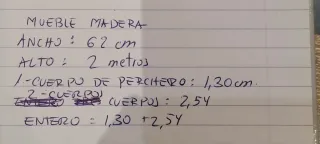 MUEBLE MADERA
ANCHO: 62 cm
ALTO: 2 metros
1-CUERPO DE PERCHERO: 1,30 cm.
2-CUERPOS
CUERPOS: 2,54
ENTERO = 1,30 + 2,54